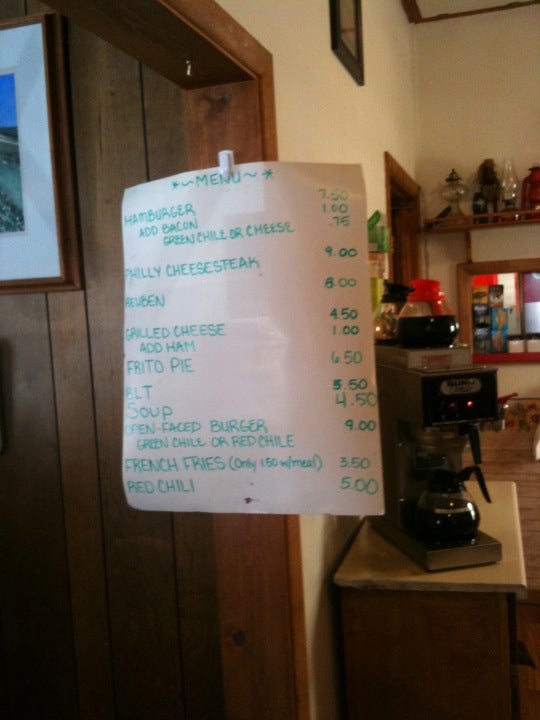 *~MENU~*
HAMBURGER 7.50
ADD BACON 1.00
GREEN CHILE OR CHEESE .75
PHILLY CHEESESTEAK 9.00
REUBEN 8.00
GRILLED CHEESE 4.50
ADD HAM 1.00
FRITO PIE 6.50
BLT 5.50
SOUP 4.50
OPEN-FACED BURGER 9.00
GREEN CHILE OR RED CHILE
FRENCH FRIES (Only 1.50 w/meal) 3.50
RED CHILI 5.00
BUNN